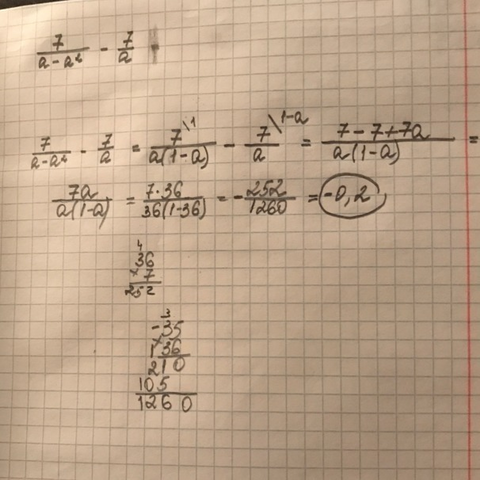 7/(a-a²) - 7/a
7/(a-a²) - 7/a = 7\1/(a(1-a)) - 7\1-a/a = (7-7+7a)/(a(1-a)) =
7a/(a(1-a)) = 7·36/(36(1-36)) = -252/1260 = -0,2
4
36
×7
252
3
-35
×36
210
105
1260